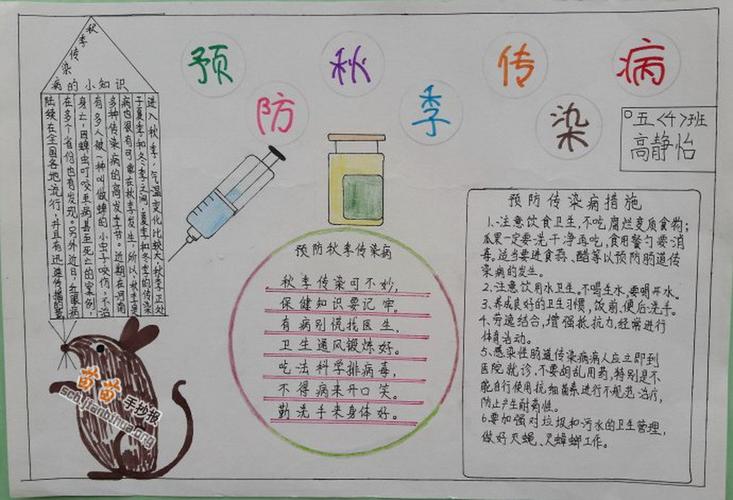 预防秋季传染病
五<4>班
高静怡
秋季传染
病的小知识
进入秋季,气温变化比较大,秋季正处
于夏季和冬季之间,夏季和冬季的传染
病也很有可能在秋季发生,所以,秋季是
多种传染病的高发季节。近期在河南
有多人被一种叫做蜱的小虫子咬伤,不治
身亡,因蜱虫叮咬至病甚至死亡的案例,
在多个省份也有发现。另外近日,红眼病
陆续在全国各地流行,并且有迅速传播
预防秋季传染病
秋季传染可不妙,
保健知识要记牢。
有病别慌找医生,
卫生通风锻炼好。
吃法科学排病毒,
不得病来开口笑。
勤洗手来身体好。
预防传染病措施
1、注意饮食卫生,不吃腐烂变质食物;
瓜果一定要洗干净再吃,食用餐勺要消
毒。适当要进食蒜、醋等以预防肠道传
染病的发生。
2、注意饮用水卫生,不喝生水,要喝开水。
3、养成良好的卫生习惯,饭前,便后洗手。
4、劳逸结合,增强抵抗力,经常进行
体育活动。
5、感染性肠道传染病病人应立即到
医院就诊,不要胡乱用药,特别是不
能自行使用抗细菌素进行不规范治疗,
防止产生耐药性。
6、要加强对垃圾和污水的卫生管理,
做好灭蝇、灭蟑螂工作。
苗苗手抄报